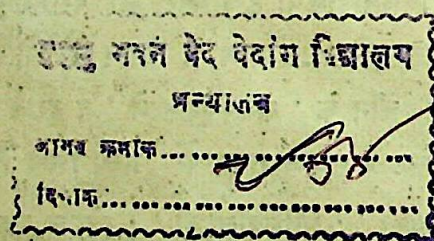 मुमुक्षु भवन वेद वेदांग विद्यालय
ग्रन्थालय
आगत क्रमांक.......................
दिनांक..............................